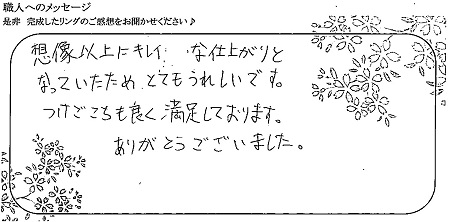 職人へのメッセージ
是非 完成したリングのご感想をお聞かせください♪
想像以上にキレイな仕上がりと
なっていたため とてもうれしいです。
つけごこちも良く満足しております。
ありがとうございました。